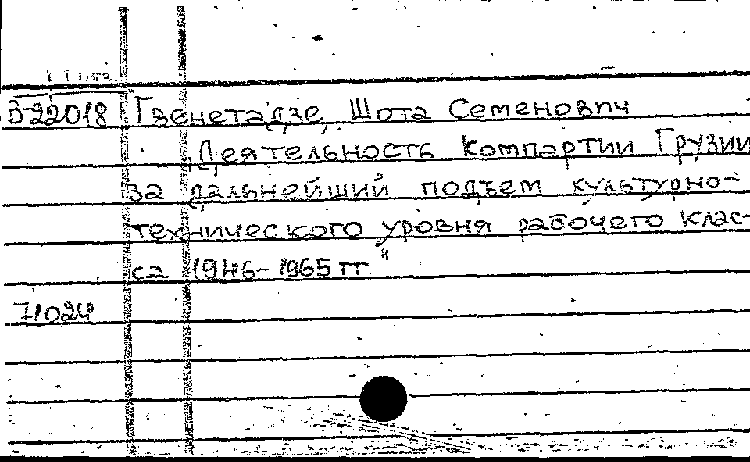 В-22018 Гзенетадзе, Шота Семенович
Деятельность Компартии Грузии
за дальнейший подъем культурно-
технического уровня рабочего клас-
са 1946-1965 гг"
71024